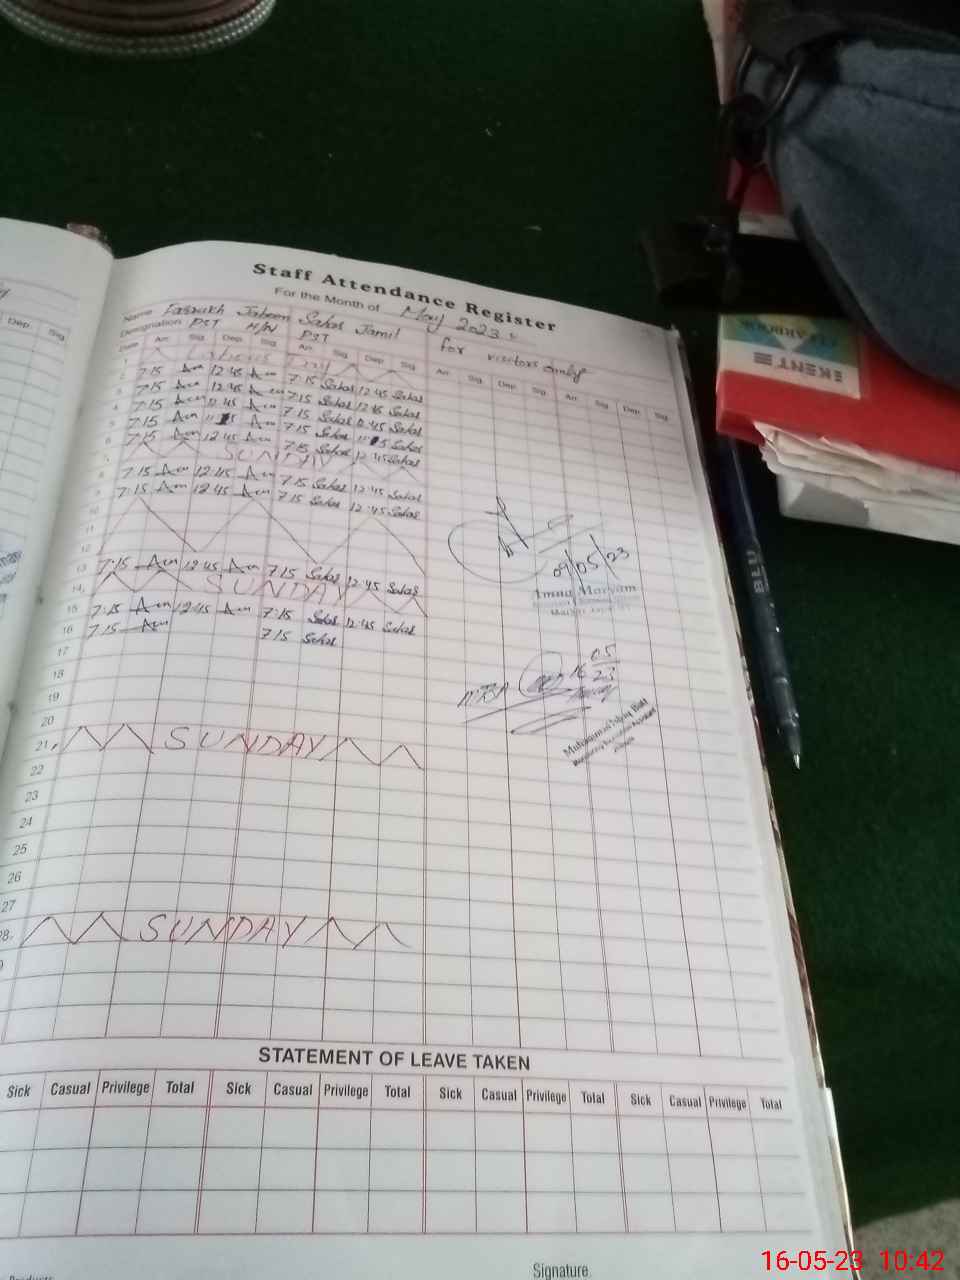 Staff Attendance Register
For the Month of May 2023
Name Jabeen Sahar Jamil for visitors only
Designation PST H/N PST
Date Arr. Sig. Dep. Sig. Arr. Sig. Dep. Sig. Arr. Sig. Dep. Sig. Arr. Sig. Dep. Sig.
1 Labour Day
2 7:15 12:45 7:15 Sahar 12:45 Sahar
3 7:15 12:45 7:15 Sahar 12:45 Sahar
4 7:15 12:45 7:15 Sahar 12:45 Sahar
5 7:15 7:15 Sahar Sahar
6 7:15 12:45 7:15 Sahar 12:45 Sahar
7 SUNDAY
8 7:15 12:45 7:15 Sahar 12:45 Sahar
9 7:15 12:45 7:15 Sahar 12:45 Sahar
10
11
12
13 7:15 12:45 7:15 Sahar 12:45 Sahar
14 SUNDAY
15 7:15 12:45 7:15 Sahar 12:45 Sahar
16 7:15 7:15 Sahar
17
18
19
20
21 SUNDAY
22
23
24
25
26
27
28 SUNDAY
09/05/23
Amna Maryam
16 05
23
Muhammad
STATEMENT OF LEAVE TAKEN
Sick Casual Privilege Total Sick Casual Privilege Total Sick Casual Privilege Total Sick Casual Privilege Total
Signature
Dep. Sig.
KENT
BLU
16-05-23 10:42